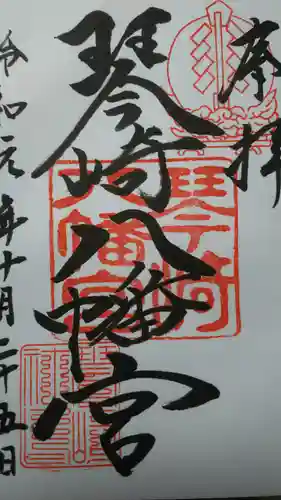 奉拝
琴崎八幡宮
令和元年十月二十五日
琴崎八幡宮